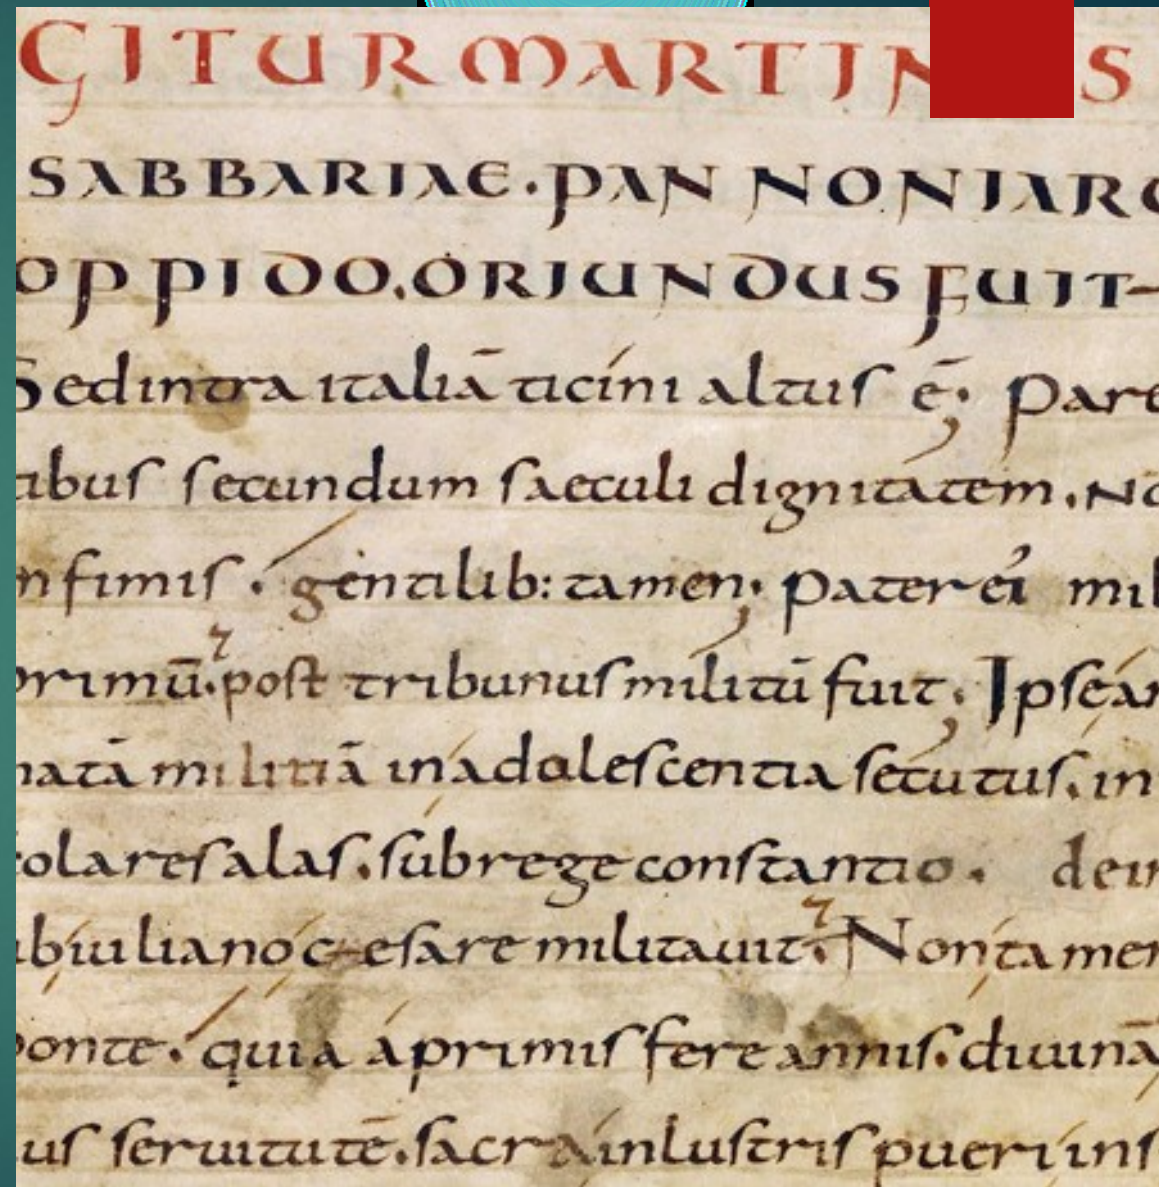 GITUR MARTIN S
SABBARIAE. PANNONIARO
OPPIDO. ORIUNDUS FUIT
Sed intra italiā ticini altus ē; Pare
tibus secundum saeculi dignitatem. No
nfimis. gentilib: tamen; Pater ei mil
primū. post tribunus militū fuit; Ipse ar
matā militiā in adolescentia secutus. in
colares alas. sub rege constantio. dein
ub iuliano cęsare militauit. Non tamen
ponte. quia a primis fere annis. diuinā
us seruitutē. sacra inlustris pueri ins